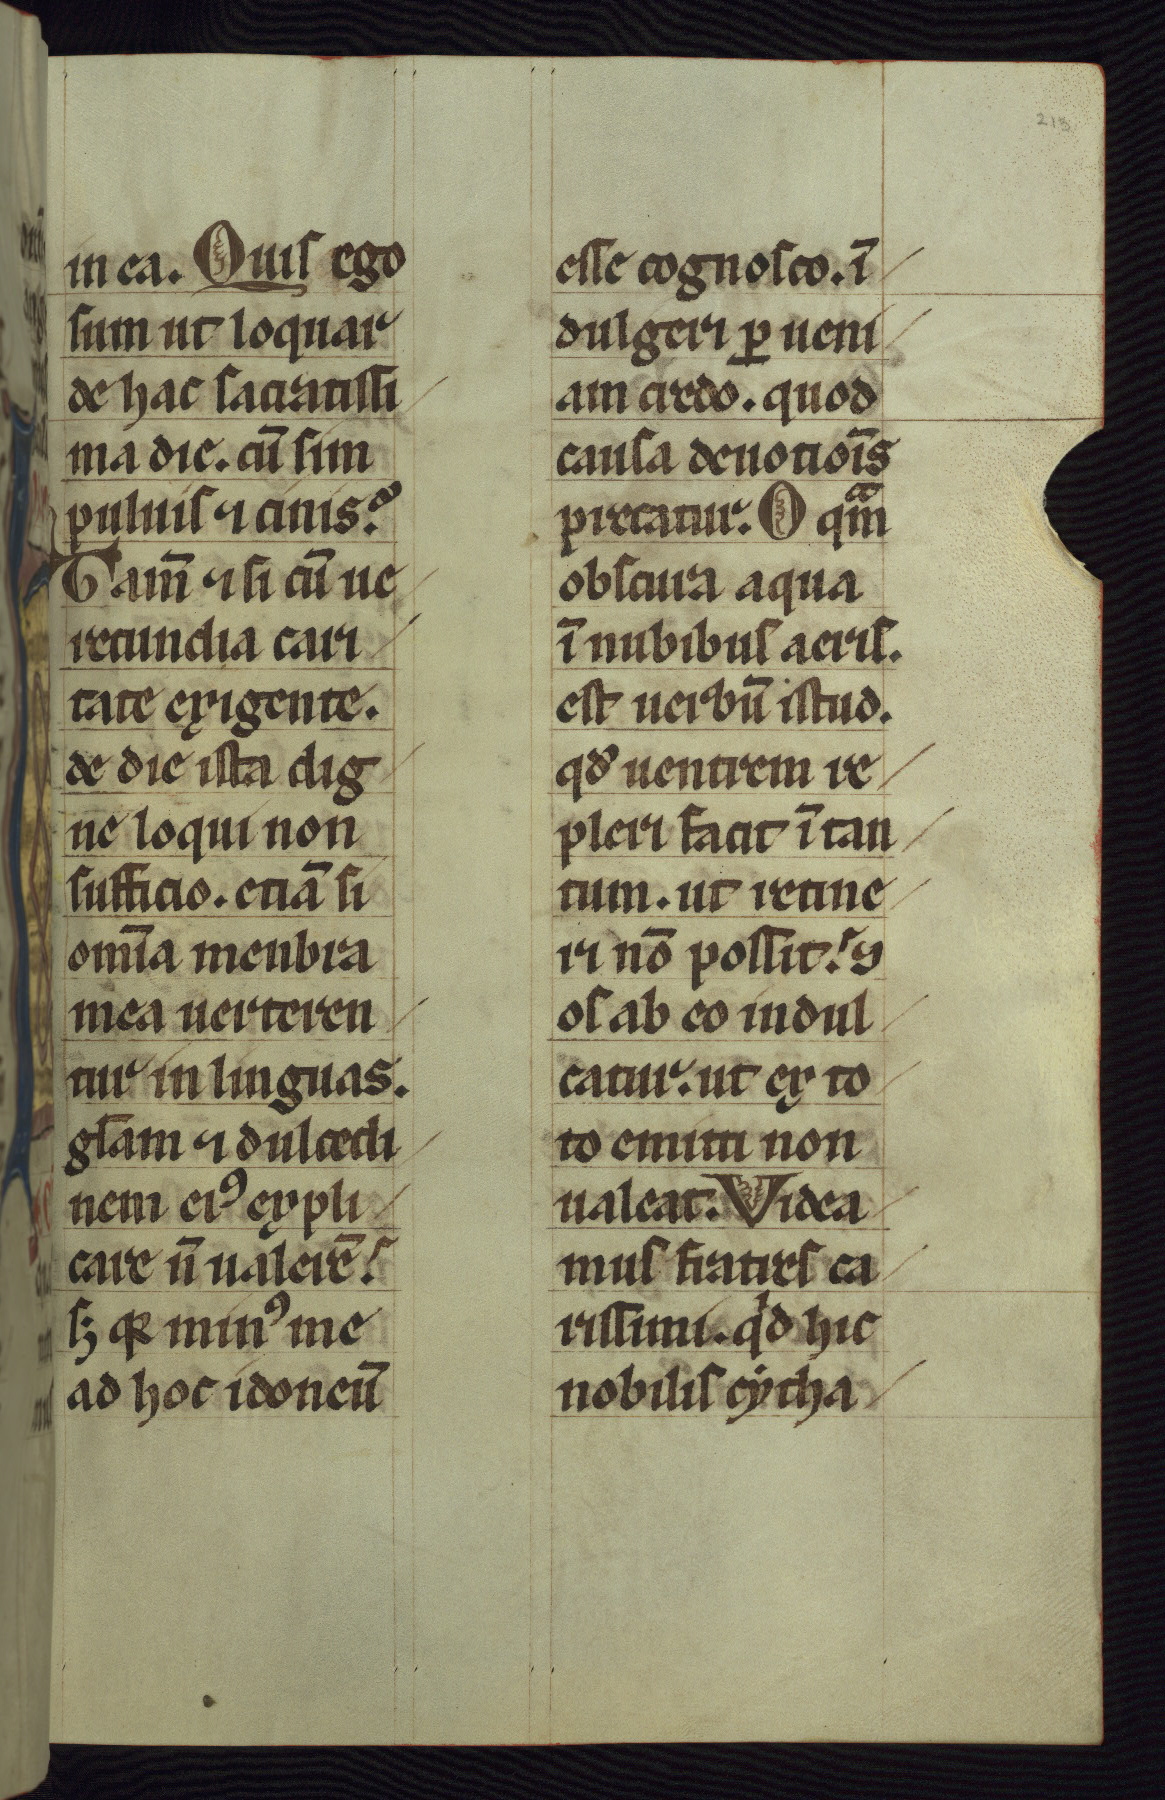 213
in ea. Quis ego
sum ut loquar
de hac sacratissi
ma die. cū sim
puluis ⁊ cinis?
Tam̄ ⁊ si cū ue
recundia cari
tate exigente.
de die ista dig
ne loqui non
sufficio. etiā si
om̄ia menbra
mea uerteren
tur in linguas.
gl̄am ⁊ dulcedi
nem eiꝰ expli
care n̄ ualerē.
sꝫ qr minꝰ me
ad hoc idoneū
esse cognosco. ī
dulgeri ꝑ ueni
am credo. quod
causa deuotiōis
precatur. O qm̄
obscura aqua
ī nubibus aeris.
est uerbū istud.
qd uentrem re
pleri facit ī tan
tum. ut retine
ri nō possit. ꝯ
os ab eo indul
catur. ut ex to
to emitti non
ualeat. Videa
mus fratres ca
rissimi. qd hic
nobilis cytha